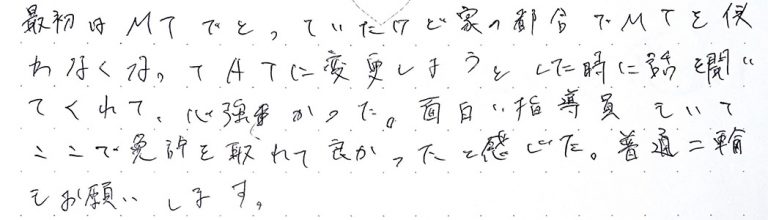 最初はMTでとっていたけど家の都合でMTを使
わなくなってATに変更しようとした時に話を聞い
てくれて、心強かった。面白い指導員もいて
ここで免許を取れて良かったと感じた。普通二輪
もお願いします。